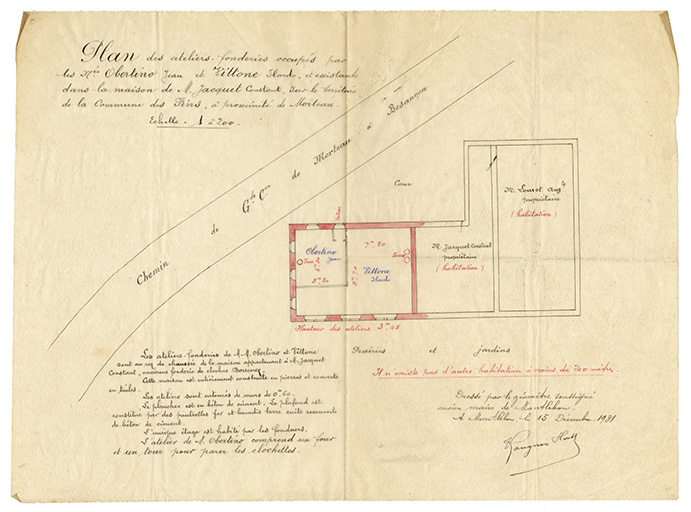 Plan des ateliers-fonderies occupés par
les Mrs Obertino Jean et Vittone, et existants
dans la maison de M. Jacquet Constant, sur le territoire
de la Commune des Fins, à proximité de Morteau.
Echelle 1 à 200.
Chemin de Gde Con de Morteau à Besançon
Cour
M. Louvet Augte
propriétaire
(habitation)
M. Jacquet Constant
propriétaire
(habitation)
Obertino
Jean
7m. 20
Four
Four
Vittone
3m. 20
Hauteur des ateliers 3m. 45
Prairies et jardins
Il n'existe pas d'autre habitation à moins de 20 mètres.
Les ateliers-fonderies de M.M. Obertino et Vittone
sont au rez de chaussée de la maison appartenant à M. Jacquet
Constant, ancienne fonderie de cloches
Cette maison est entièrement construite en pierres et couverte
en tuiles.
Les ateliers sont entourés de murs de 0m 60.
Le plancher est en béton de ciment. Le plafond est
constitué par des poutrelles fer et hourdis terre cuite recouverts
de béton de ciment.
L'unique étage est habité par les fondeurs.
L'atelier de M. Obertino comprend un four
et un tour pour parer les clochettes.
Dressé par le géomètre soussigné
ancien maire de Montlebon.
A Montlebon, le 15 Décembre 1931